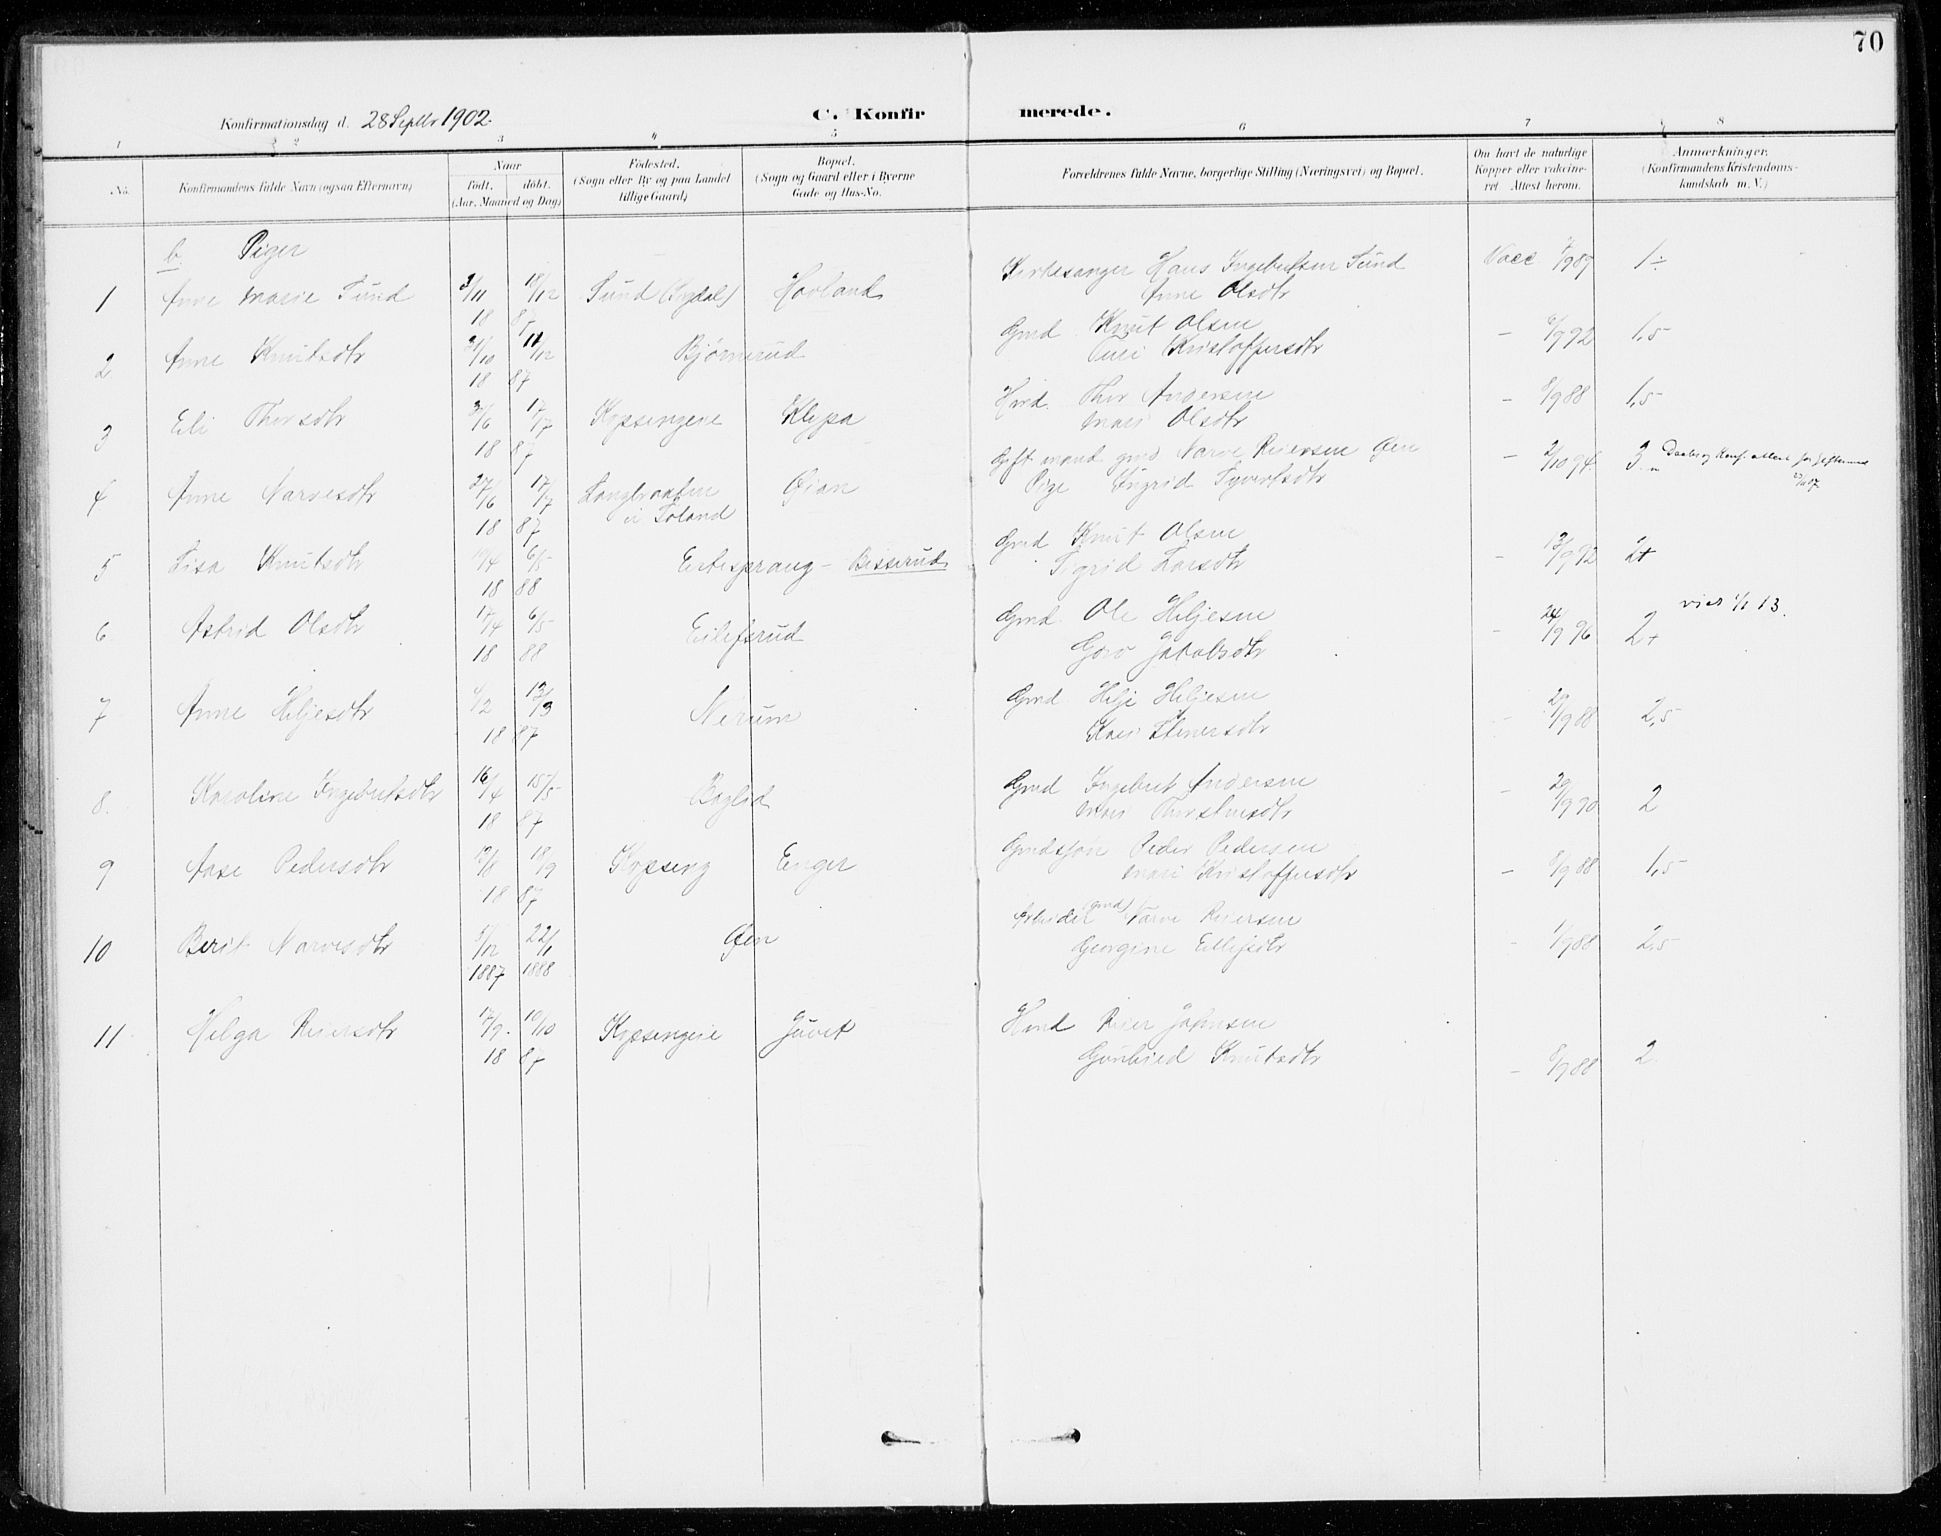 70
Konfirmationsdag d. 28 Septbr 1902.
C. Konfirmerede.
1 2 3 4 5 6 7 8
No.
Konfirmandens fulde Navn (ogsaa Efternavn)
Naar
født. døbt.
(Aar, Maaned og Dag)
Fødested.
(Sogn eller By og paa Landet
tillige Gaard)
Bopæl.
(Sogn og Gaard eller i Byerne
Gade og Hus-No.
Forældrenes fulde Navne, borgerlige Stilling (Næringsvei) og Bopæl.
Om havt de naturlige
Kopper eller vakcine-
ret Attest herom.
Anmærkninger.
(Konfirmandens Kristendoms-
kundskab m. V.)
b. Piger
1 Anne Marie Sund 3/11 18/12 18 87 Sund (Sigdal) Hovland Kirkesanger Hans Ingebretsen Sund
Anne Olsdtr Vacc /9 89 1÷
2 Anne Knutsdtr 31/10 11/12 18 87 Bjørnerud Gmd Knut Olsen
Turi Kristoffersdtr – 6/9 92 1,5
3 Eli Thorsdtr 3/6 17/7 18 87 Kopsengeie Kleppa Hmd. Thor Andersen
Mari Olsdtr – 8/9 88 1,5
4 Anne Narvesdtr 27/6 17/7 18 87 Langbraaten
i Soland Øian Gift mand gmd Narve Reiersen Øen
Pige Ingrid Syvertsdtr – 2/10 94 3 Daabs og Konf. attest for giftermaal
5 Lisa Knutsdtr 19/4 6/5 18 88 Eidesprang – Bisserud Gmd Knut Olsen
Sigrid Larsdtr – 13/9 92 2+
6 Astrid Olsdtr 17/4 6/5 18 88 Eilefsrud Gmd Ole Heljesen
Goro Jakobsdtr – 24/9 96 2+ viet 1/1 13.
7 Anne Heljesdtr 4/2 13/3 18 87 Nerum Gmd Helje Heljesen
Kari Stenersdtr – 29/9 88 2,5
8 Karoline Ingebretsdtr 16/4 15/5 18 87 Baglid Gmd Ingebret Andersen
Mari Thorstensdtr – 29/9 90 2
9 Aase Pedersdtr 13/8 18/9 18 87 Kopseng Enger Gmdssøn Peder Pedersen
Mari Kristoffersdtr – 8/9 88 1,5
10 Berit Narvesdtr 5/12 22/1 1887 1888 Øen Arbeider (gmd) Narve Reiersen
Georgine Ellefsdtr – 1/9 88 2,5
11 Helga Reiersdtr 17/9 10/10 18 87 Kopsengeie Juvet Hmd Reier Johnsen
Gunhild Knutsdtr – 8/9 88 2